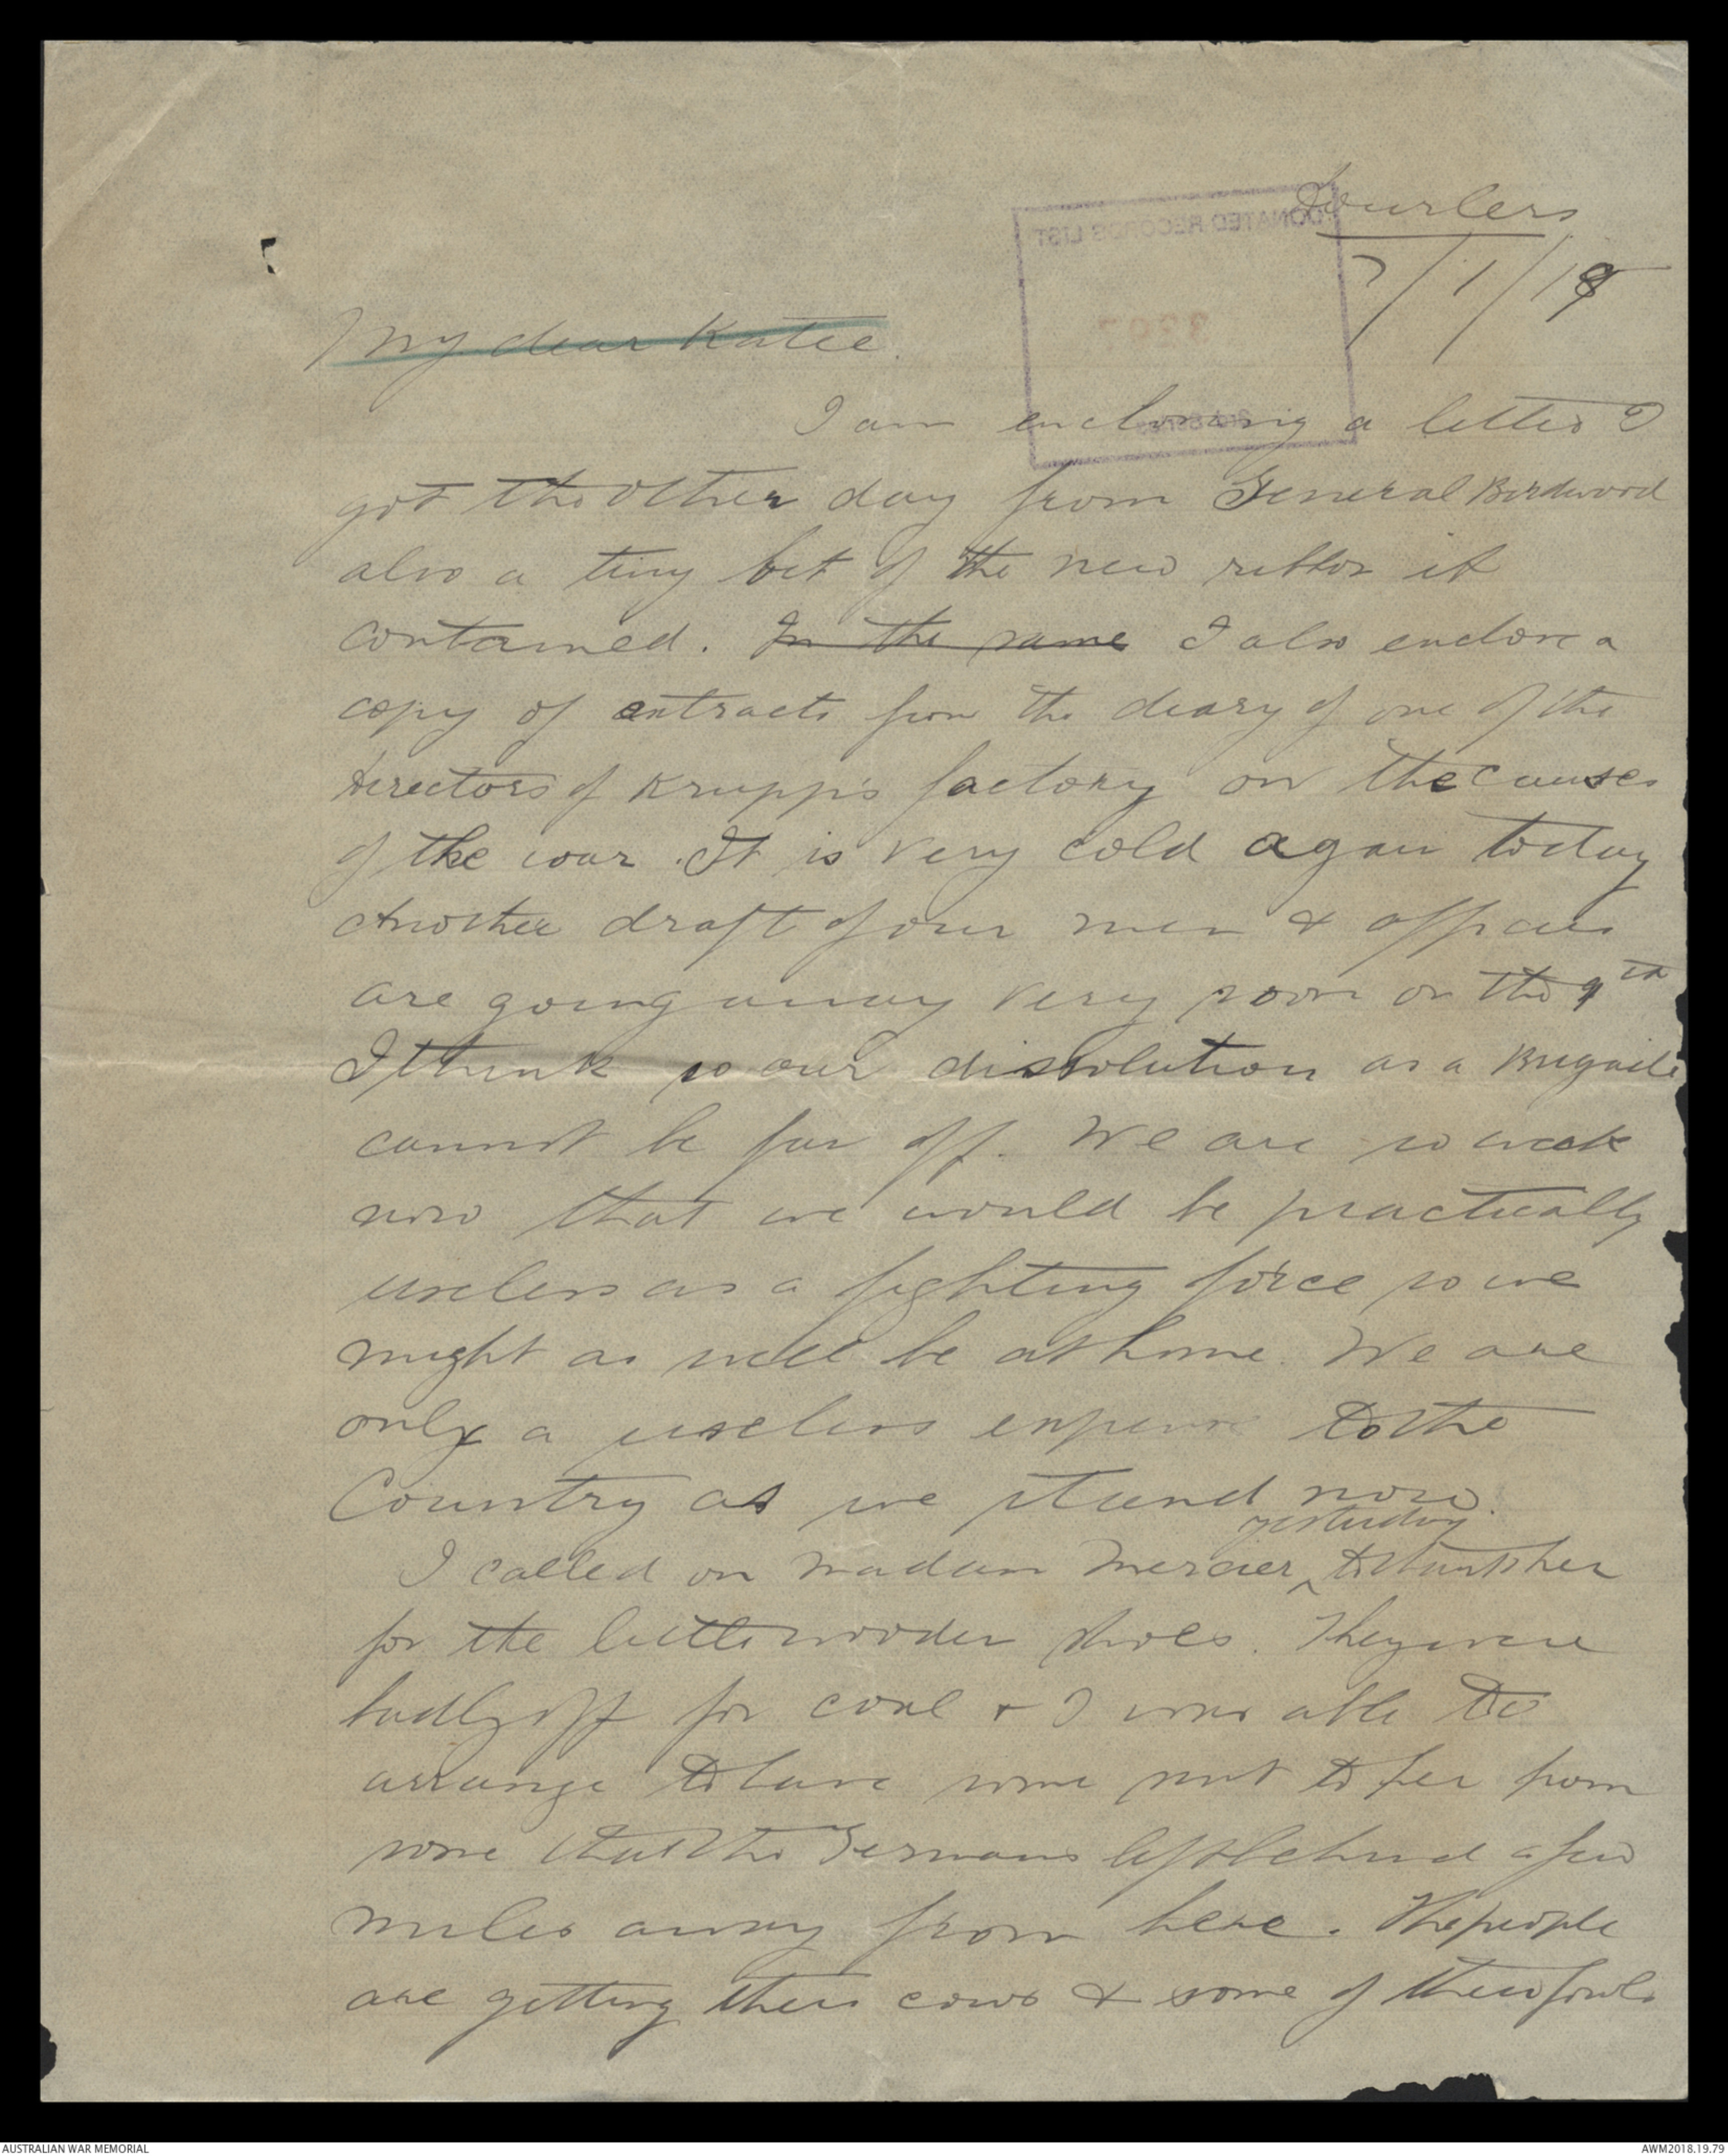 Dourlers
7/1/19
DONATED RECORDS LIST
My dear Katie.
I am enclosing a letter I
got the other day from General Birdwood
also a tiny bit of the new ribbon it
contained. In the same I also enclose a
copy of extracts from the diary of one of the
directors of Krupp's factory on the causes
of the war. It is very cold again today
Another draft of our men & officers
are going away very soon on the 9th
I think so our dissolution as a Brigade
cannot be far off. We are so weak
now that we would be practically
useless as a fighting force so we
might as well be at home. We are
only a useless expense to the
Country as we stand now.
yesterday
I called on Madam Mercier ‸ to thank her
for the little wooden shoes. They were
badly off for coal & I was able to
arrange to have some sent to her from
some that the Germans left behind a few
miles away from here. The people
are getting their cows & some of their fowls
AUSTRALIAN WAR MEMORIAL
AWM2018.19.79